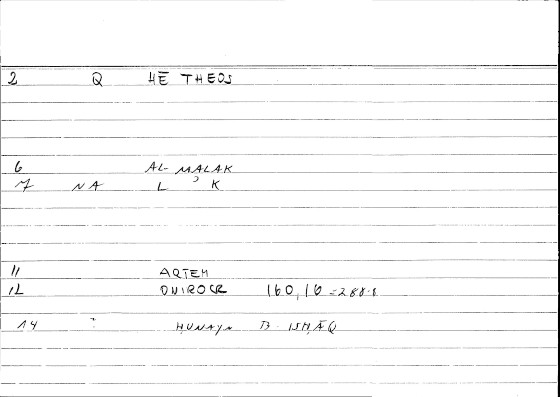 2 Q HĒ THEOS
6 AL-MALAK
7 NA L ʾ K
11 ARTEM
12 ONIROCR 160,16 = 288.8
14 ? ḤUNAYN B ISḤĀQ